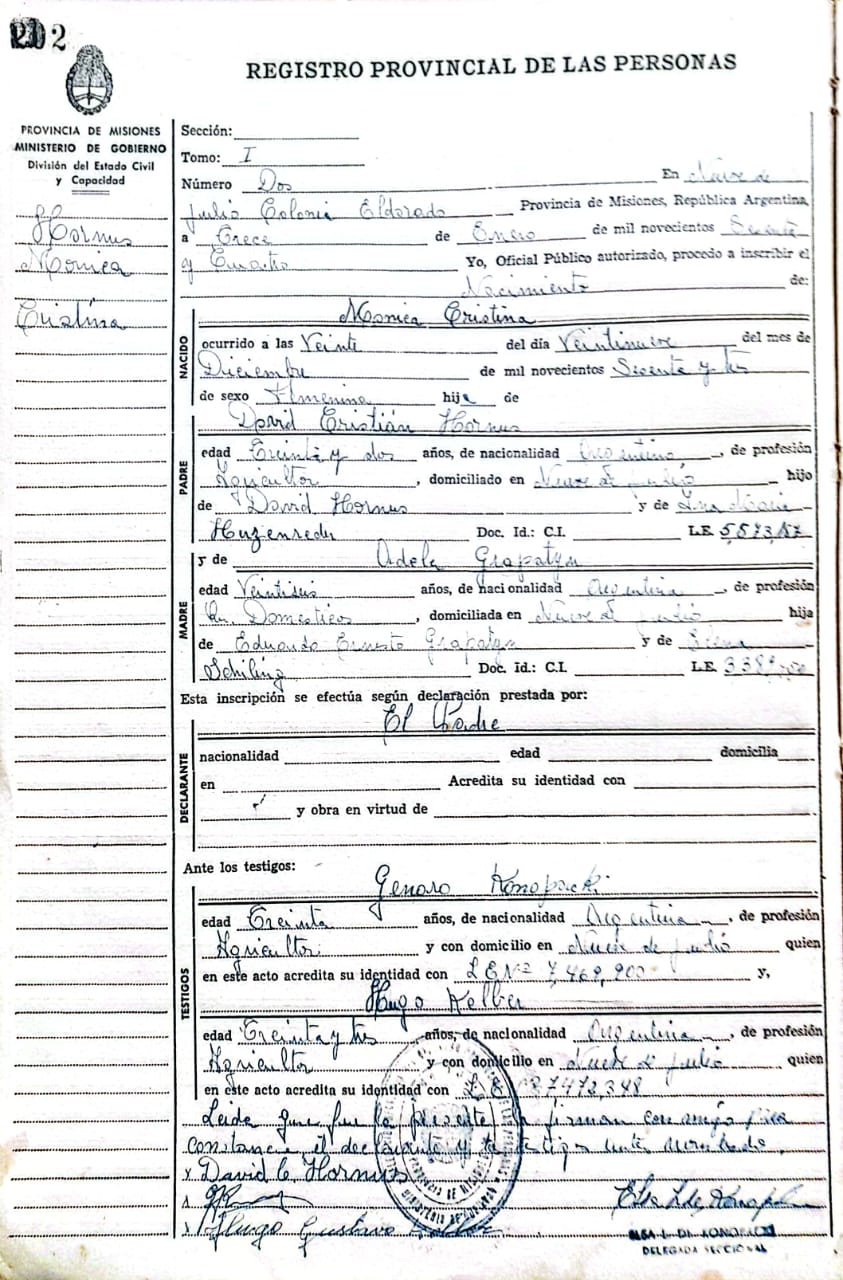 202
REGISTRO PROVINCIAL DE LAS PERSONAS
PROVINCIA DE MISIONES
MINISTERIO DE GOBIERNO
División del Estado Civil
y Capacidad
Hornus
Monica
Cristina
Sección:
Tomo: I
Número Dos En Nueve de
Julio Colonia Eldorado Provincia de Misiones, República Argentina,
a Trece de Enero de mil novecientos Sesenta
y Cuatro Yo, Oficial Público autorizado, procedo a inscribir el
Nacimiento de:
NACIDO
Monica Cristina
ocurrido a las Veinte del día Veintinueve del mes de
Diciembre de mil novecientos Sesenta y tres
de sexo Femenina hija de
PADRE
David Cristián Hornus
edad Treinta y dos años, de nacionalidad Argentina, de profesión
Agricultor, domiciliado en Nueve de julio hijo
de David Hornus y de
Doc. Id.: C.I. L.E.
MADRE
y de Adela Grapatyn
edad Veintiseis años, de nacionalidad Argentina, de profesión
Domesticos, domiciliada en Nueve de julio hija
de Eduardo Ernesto Grapatyn y de
Schiling Doc. Id.: C.I. L.E.
Esta inscripción se efectúa según declaración prestada por:
El Padre
DECLARANTE
nacionalidad edad domicilia
en Acredita su identidad con
y obra en virtud de
Ante los testigos:
TESTIGOS
Genaro Konopacki
edad Treinta años, de nacionalidad Argentina, de profesión
Agricultor y con domicilio en Nueve de julio quien
en este acto acredita su identidad con L E Nº 7,469,900 y,
Hugo Kelber
edad Treinta y tres años, de nacionalidad Argentina, de profesión
Agricultor y con domicilio en Nueve de julio quien
en este acto acredita su identidad con L E 7472,348
Leida que fue la presente firman conmigo para
constancia el declarante y testigos antes nombrado.
x David C. Hornus
x Hugo Gustavo
ELSA L. DE KONOPACKI
DELEGADA SECCIONAL
PROVINCIA DE MISIONES
MINISTERIO DE GOBIERNO